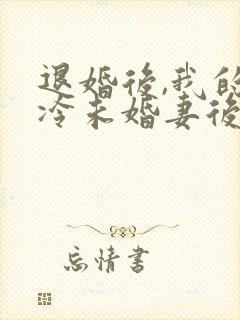 退婚後,我的
冷未婚妻後
忘情書